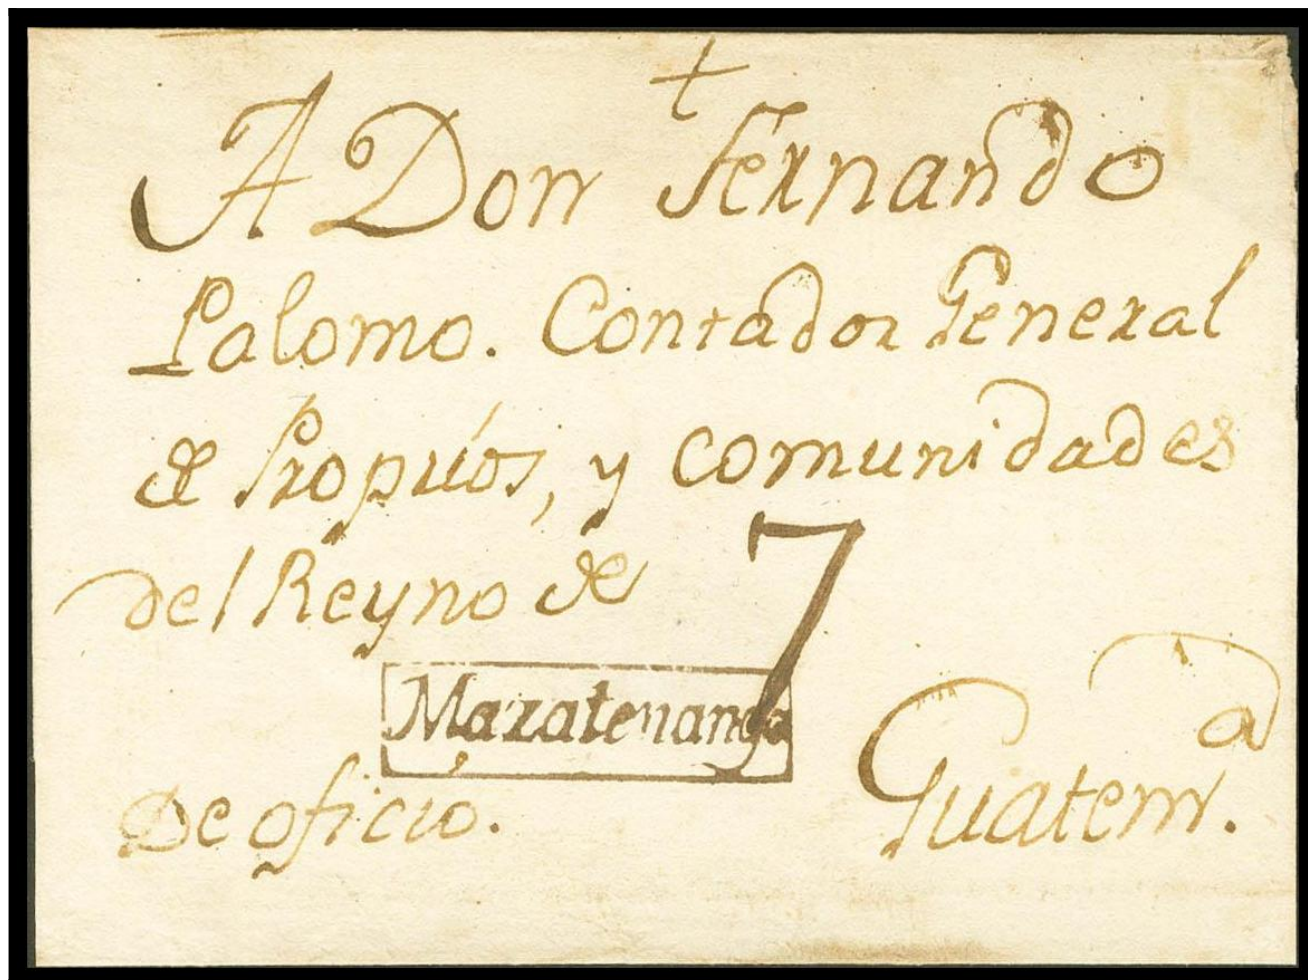 †
A Don Fernando
Palomo. Contador General
de Proprios, y comunidades
del Reyno de
7
Mazatenango
De oficio.
Guatem.ᵃ